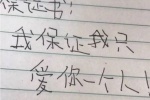 保证书：
我保证我只
爱你一个人！